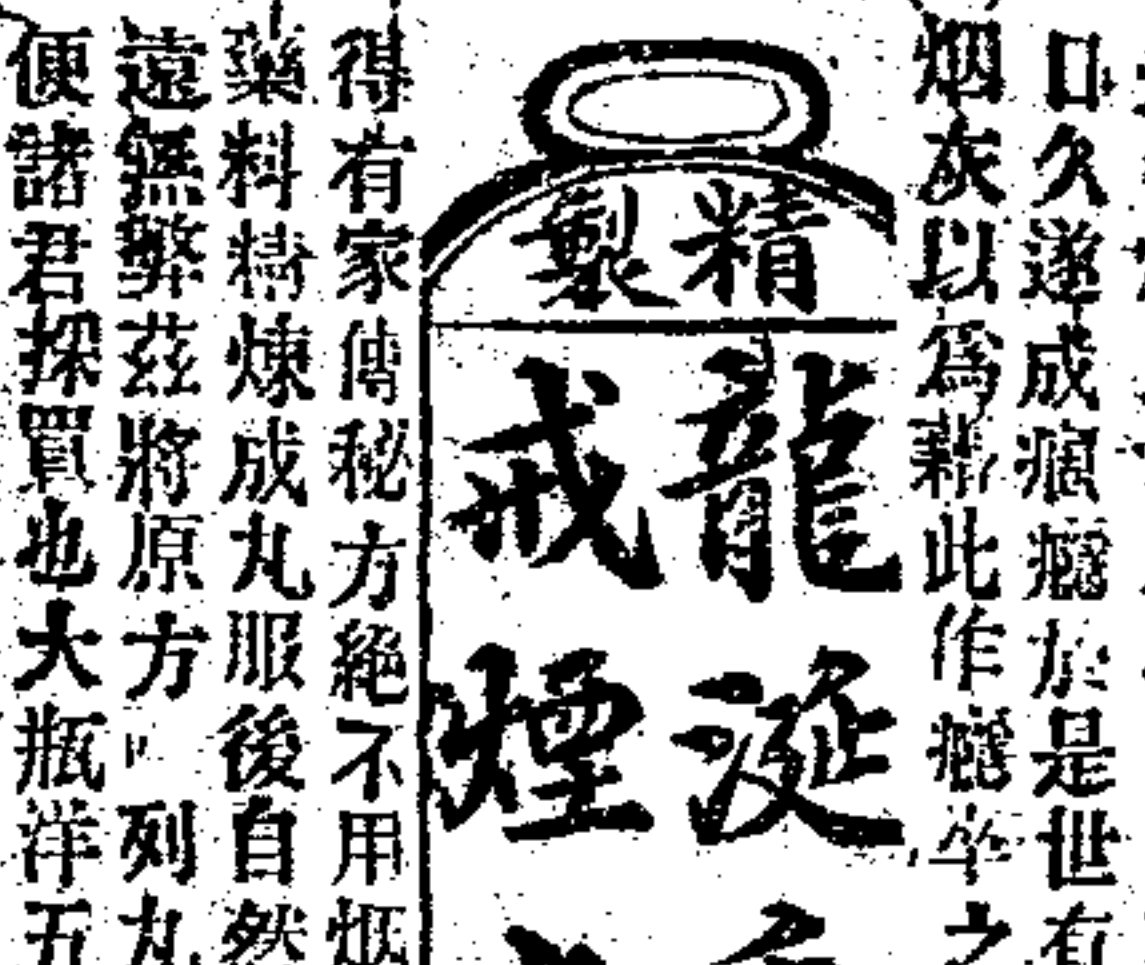 日久遂成痕癮於是世有
烟灰以爲藉此作癮卒之
精製
龍涎
戒煙
得有家傳秘方絕不用烟
藥料精煉成丸服後自然
遠無弊茲將原方 列丸
便諸君採買也大瓶洋五